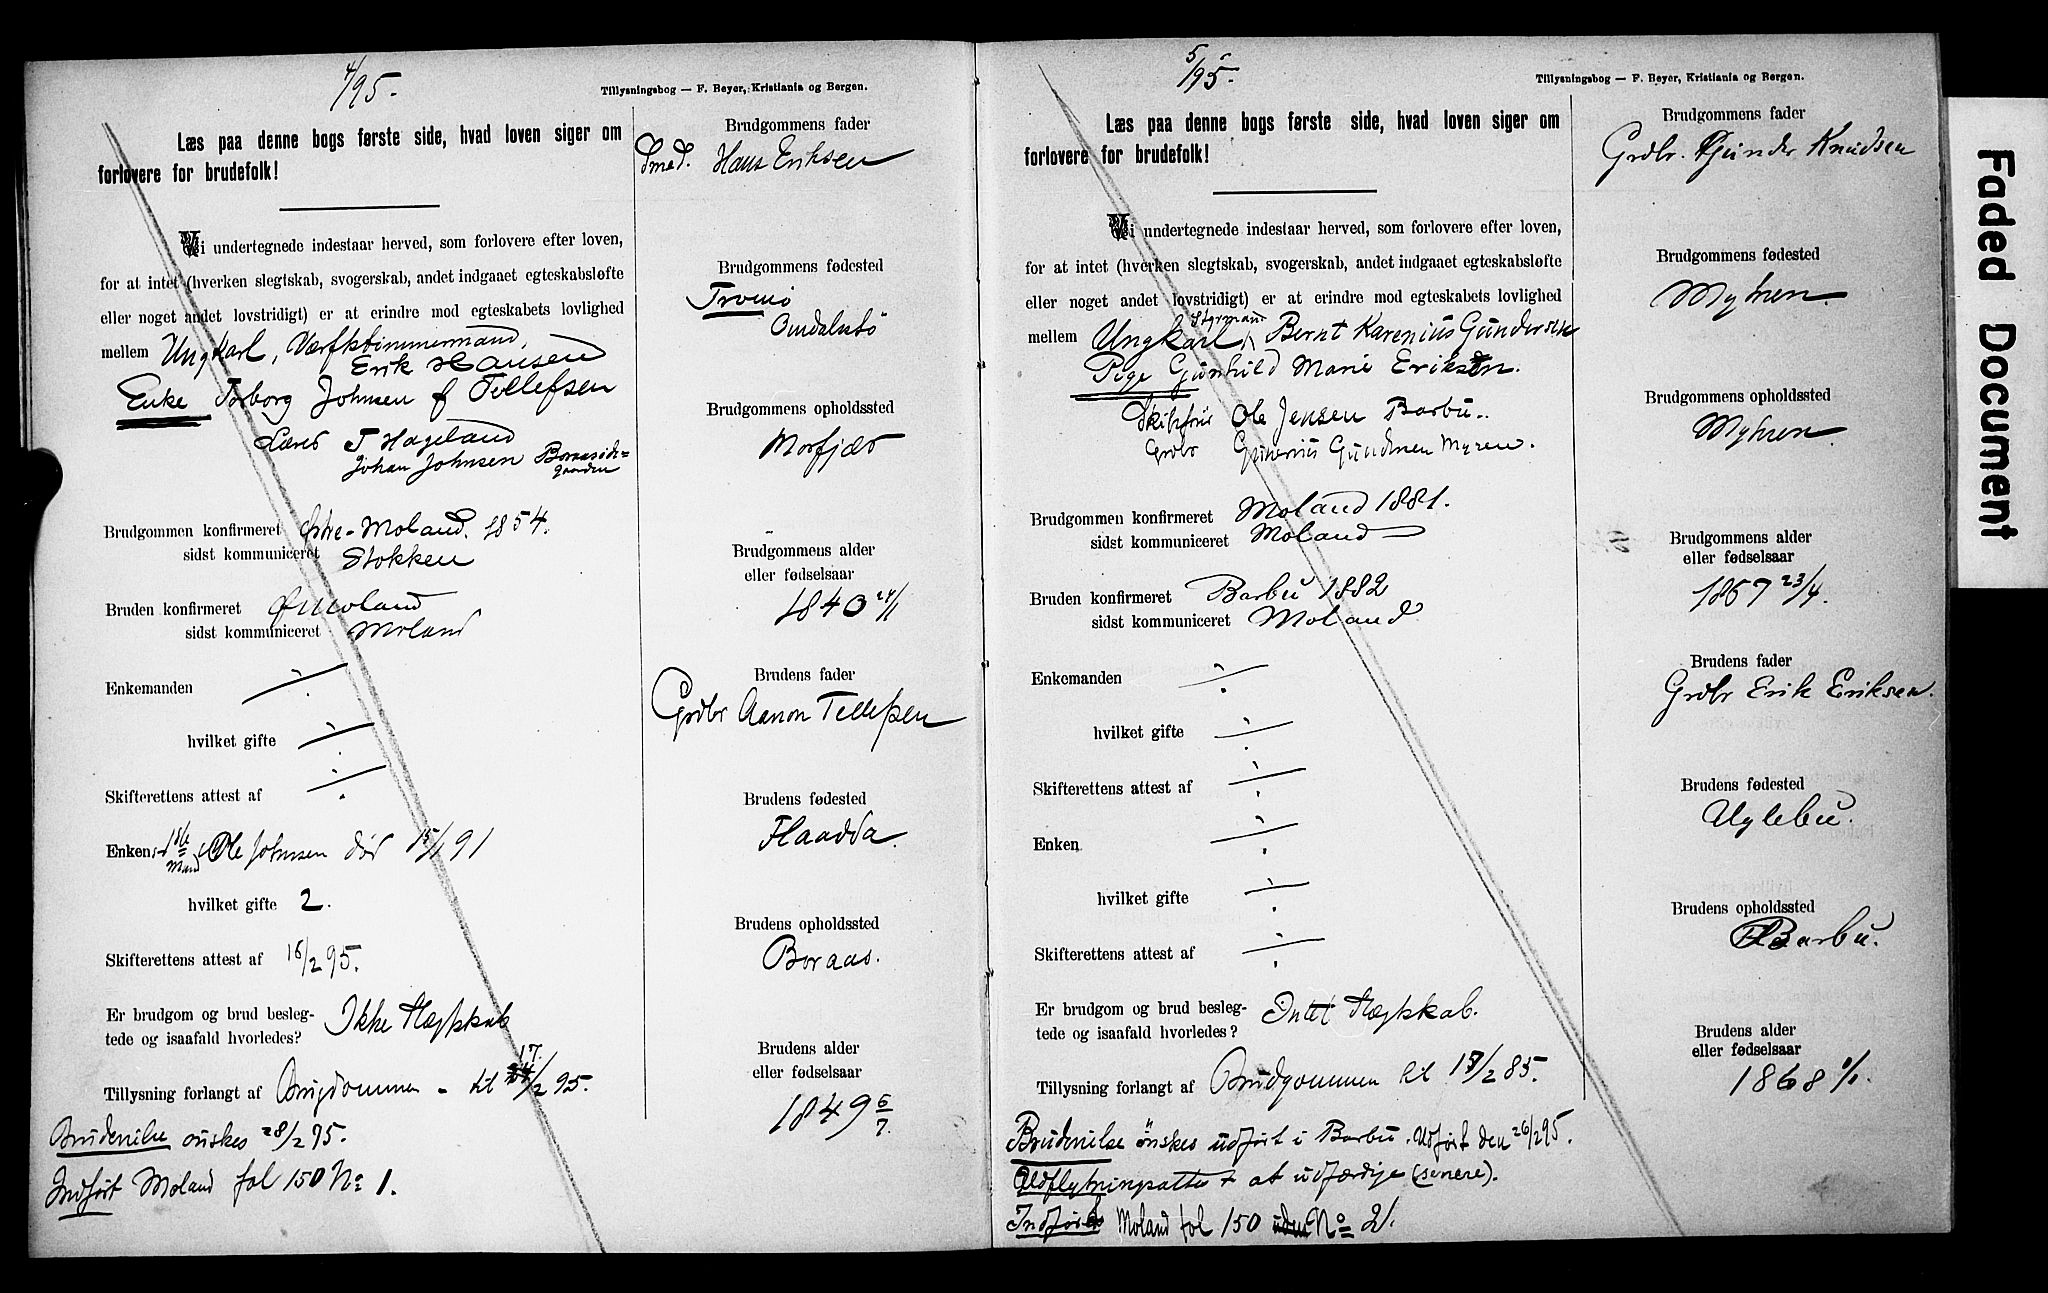 4/95.
Tillysningsbog — F. Beyer, Kristiania og Bergen.
Læs paa denne bogs første side, hvad loven siger om
forlovere for brudefolk!
Vi undertegnede indestaar herved, som forlovere efter loven,
for at intet (hverken slegtskab, svogerskab, andet indgaaet egteskabsløfte
eller noget andet lovstridigt) er at erindre mod egteskabets lovlighed
mellem Ungkarl, Værftstimmermand,
Erik Hansen
Enke Torborg Johnsen f Tellefsen
Lærer T Hageland
Johan Johnsen
Brudgommen konfirmeret Østre-Moland. 1854.
sidst kommuniceret Stokken
Bruden konfirmeret ØMoland
sidst kommuniceret Moland
Enkemanden ÷
hvilket gifte ÷
Skifterettens attest af ÷
Enkens 1ste Mand Ole Johnsen død 15/1 91
hvilket gifte 2.
Skifterettens attest af 16/2 95.
Er brudgom og brud besleg-
tede og isaafald hvorledes? Ikke Slægtskab
Tillysning forlangt af Brugdommen - til 17./2 95.
Brudevielse ønskes 28/2 95.
Indført Moland fol 150 No 1.
Brudgommens fader
Smed. Hans Eriksen
Brudgommens fødested
Tromø
Brudgommens opholdssted
Morfjær
Brudgommens alder
eller fødselsaar
1840 24/1
Brudens fader
Grdbr Aanon Tellefsen
Brudens fødested
Flaadda.
Brudens opholdssted
Boraas.
Brudens alder
eller fødselsaar
1849 6/7.
5/95.
Tillysningsbog — F. Beyer, Kristiania og Bergen.
Læs paa denne bogs første side, hvad loven siger om
forlovere for brudefolk!
Vi undertegnede indestaar herved, som forlovere efter loven,
for at intet (hverken slegtskab, svogerskab, andet indgaaet egteskabsløfte
eller noget andet lovstridigt) er at erindre mod egteskabets lovlighed
Styrmann
mellem Ungkarl Bernt Karenius Gundersen
Pige Gunhild Marie Eriksen.
Skibsfør Ole Jensen Barbu..
Grdbr Gunerius Gundersen Myren.
Brudgommen konfirmeret Moland 1881.
sidst kommuniceret Moland
Bruden konfirmeret Barbu 1882
sidst kommuniceret Moland
Enkemanden ÷
hvilket gifte ÷
Skifterettens attest af ÷
Enken ÷
hvilket gifte ÷
Skifterettens attest af ÷
Er brudgom og brud besleg-
tede og isaafald hvorledes? Intet Slægtskab.
Tillysning forlangt af Brudgommen til 17/2 85.
Brudevielse ønskes udført i Barbu. Udført den 26/2 95.
Udflytningsattest at udfærdige (senere).
Indført Moland fol 150 No 2.
Brudgommens fader
Grdbr. Gunder Knudsen
Brudgommens fødested
Myhren.
Brudgommens opholdssted
Myhren.
Brudgommens alder
eller fødselsaar
1867 23/4.
Brudens fader
Grdbr Erik Eriksen.
Brudens fødested
Uglebu.
Brudens opholdssted
Barbu.
Brudens alder
eller fødselsaar
1868
Faded Document